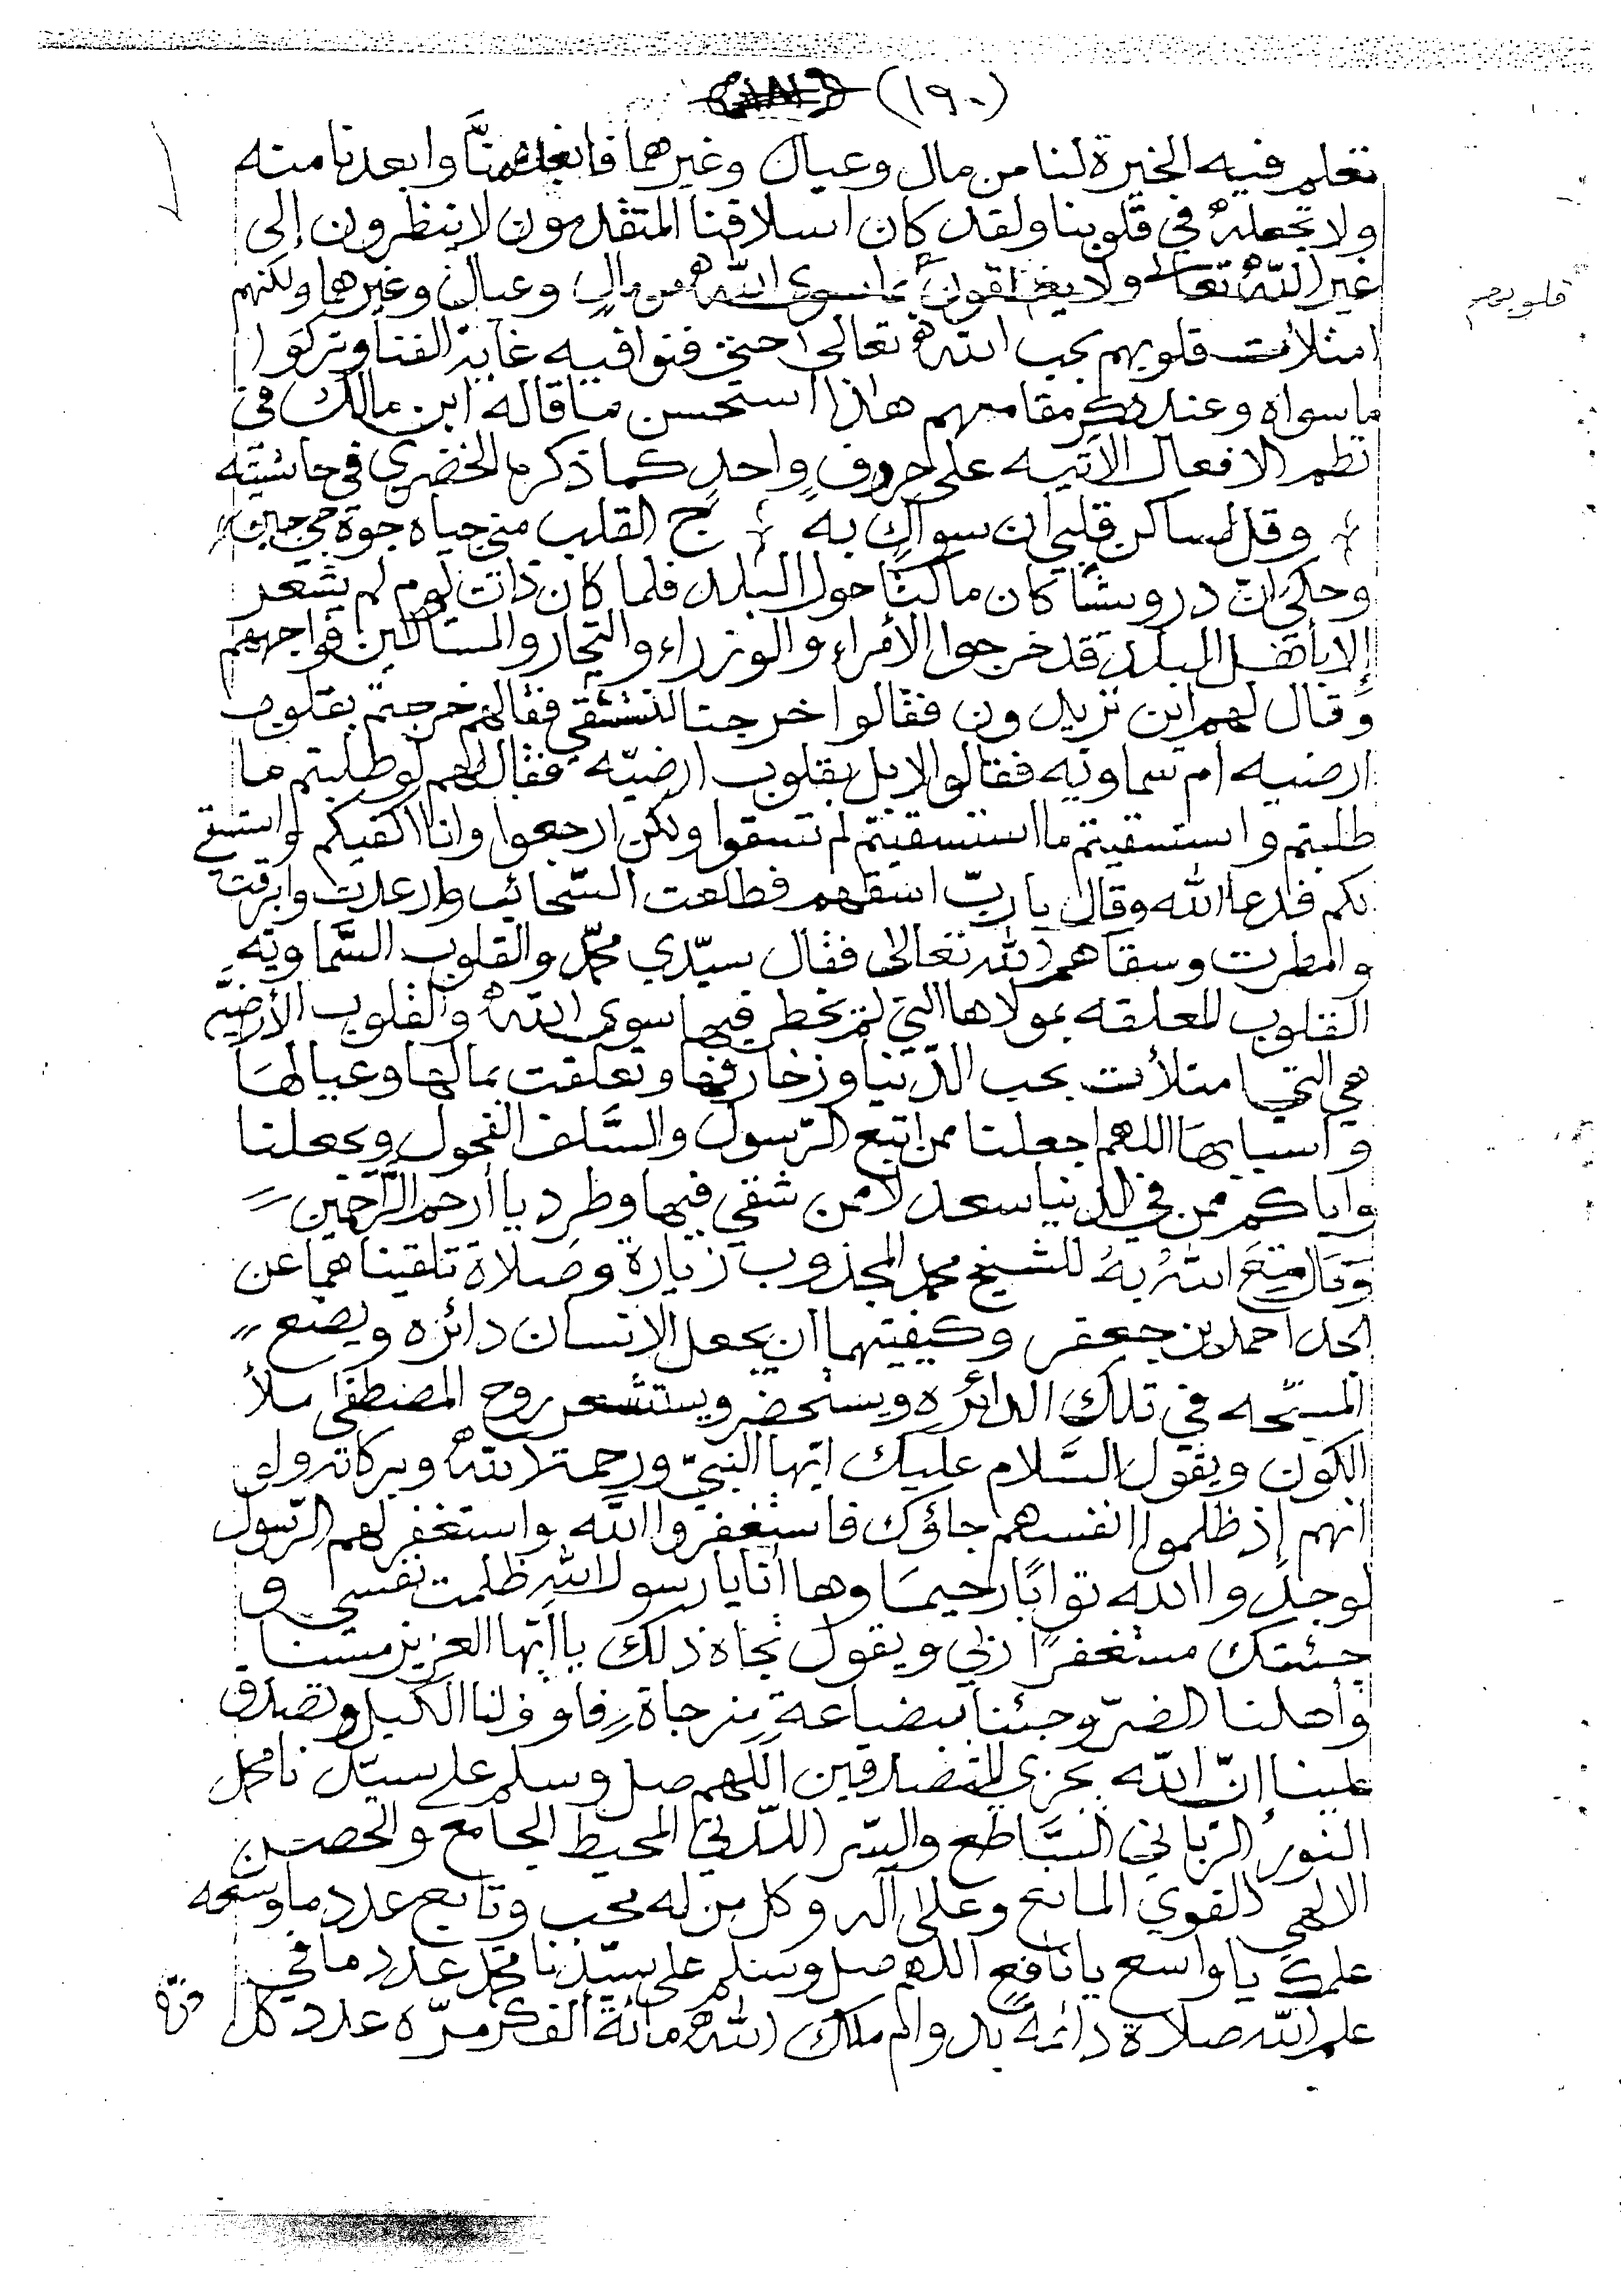 (١٩٠)
تعلم فيه الخيرة لنا من مال وعيال وغيرهما فابعده منَّا وابعدنا منه
ولا تجعله في قلوبنا ولقد كان اسلافنا المتقدمون لا ينظرون إلى
غير الله تعالى ولا ما سوى الله من مال وعيال وغيرهما ولكنهم
قلوبهم
امتلأت قلوبهم بحب الله تعالى حتى فنوا فيه غاية الفنا وتركوا
ما سواه وعند ذكر مقامهم هاذا استحسن ما قاله ابن مالك في
نظم الافعال الآتيه على حروفٍ واحدٍ كما ذكره الخضري في حاشيته
وقل لساكن قلبي ان سواك به ج القلب مني جياه جوة جي جين
وحكي انّ درويشًا كان ماكثًا حول البلد فلما كان ذات يوم لم يشعر
إلا بأهل البلد قد خرجوا الأمراء والوزراء والتجار والمساكين فواجههم
وقال لهم اين تريدون فقالوا خرجنا لنستقي فقال لهم خرجتم بقلوب
ارضيه ام سماويه فقالوا لا بل بقلوب ارضيّه فقال لهم لو طلبتم ما
طلبتم واستسقيتم ما استسقيتم لم تسقوا ولكن ارجعوا وانا اكفيكم واستسقي
لكم فدعا الله وقال يا ربّ اسقهم فطلعت السّحائب وارعدت وابرقت
وامطرت وسقاهم الله تعالى فقال سيّدي محمّد والقلوب السَّماويّه
القلوب المعلقه بمولاها التي لم يخطر فيها سوى الله والقلوب الأرضيَّه
هي التي امتلأت بحب الدّنيا وزخارفها وتعلقت بمالها وعيالها
واسبابها اللهم اجعلنا ممن اتبع الرّسول والسَّلف الفحول ويجعلنا
واياكم ممن في الدنيا سعد لا من شقي فيها وطرد يا أرحم الرَّاحمين
وقال متع الله به للشيخ محمد المجذوب زيارة وصلاة تلقيناهما عن
الجد احمد بن جعفر وكيفيتهما ان يجعل الإنسان دائره ويضع
المسبّحه في تلك الدائره ويستحضر ويستشعر روح المصطفى ملأ
الكون ويقول السَّلام عليك ايّها النبيّ ورحمة الله وبركاته ولو
انهم إذ ظلموا انفسهم جاؤك فاستغفروا الله واستغفر لهم الرّسول
لوجدوا الله توابًا رحيمًا وها أنا يا رسول الله ظلمت نفسي و
جئتك مستغفرًا ربّي ويقول تجاه ذلك يا ايّها العزيز مسنا
وأهلنا الضرّ وجئنا ببضاعة مزجاة فاوف لنا الكيل وتصدق
علينا إنّ الله يجزي المتصدقين اللّهم صل وسلم على سيّدنا محمد
النور الرّباني السَّاطع والسّر اللّدني المحيط الجامع والحصن
الالهي القوي المانع وعلى آله وكل من له محب وتابع عدد ما وسعه
علمك يا واسع يا نافع اللهم صل وسلم على سيّدنا محمّد عدد ما في
علم الله صلاةً دائمةً بدوام ملك الله مائة ألف كر مرّه عدد كل
ذرّة